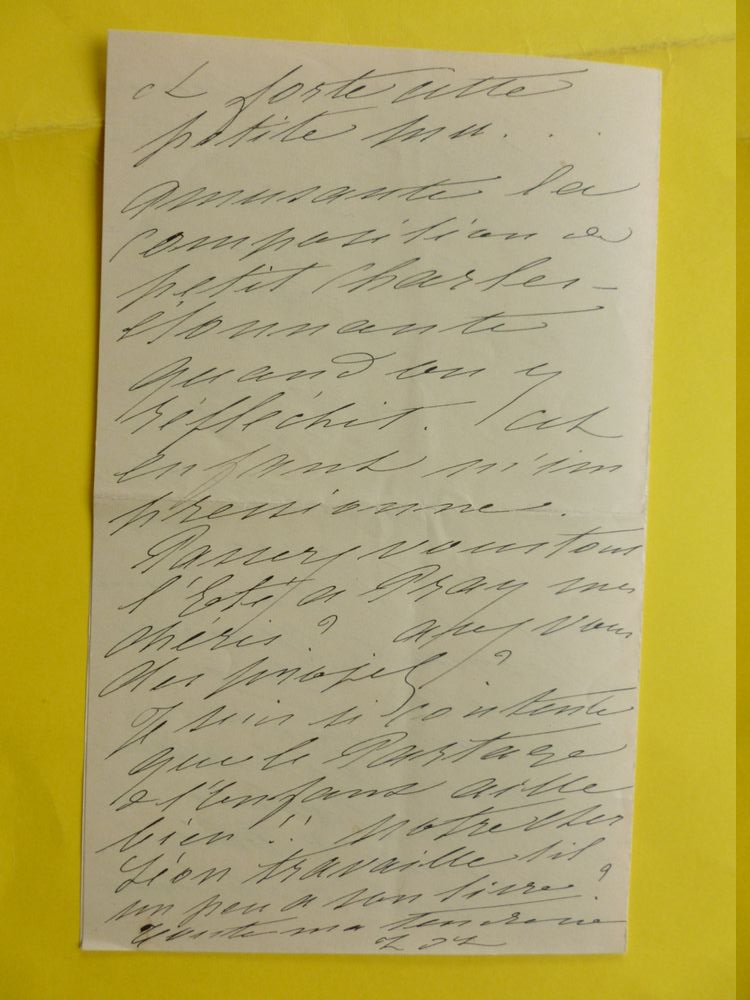 et forte cette
petite
amusante la
composition de
petit Charles –
étonnante
quand on y
réfléchit. Cet
enfant m'im
pressionne.
Passez vous tous
l'Eté à Pray mes
chéris ? avez vous
des projets ?
Je suis si contente
que le Partage
de l'Enfant aille
bien !! Notre cher
Léon travaille til
un peu a son livre ?
toute ma tendresse